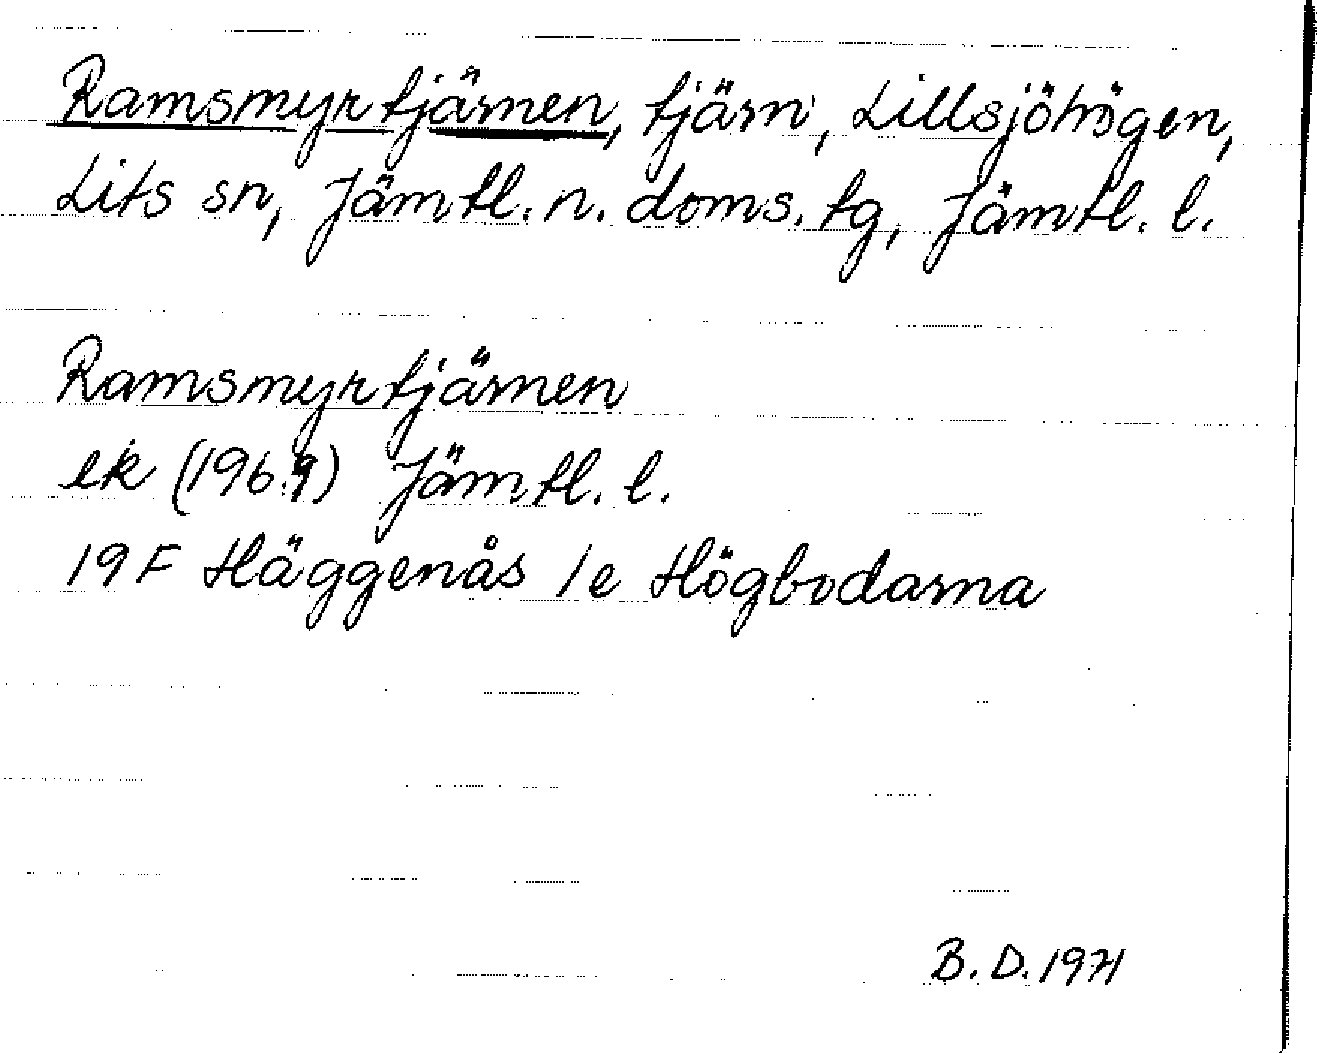 Ramsmyrtjärnen, tjärn, Lillsjöhögen,
Lits sn, Jämtl. n. doms. tg, Jämtl. l.
Ramsmyrtjärnen
ek (1969) Jämtl. l.
19 F Häggenås 1e Högbodarna
B. D. 1971